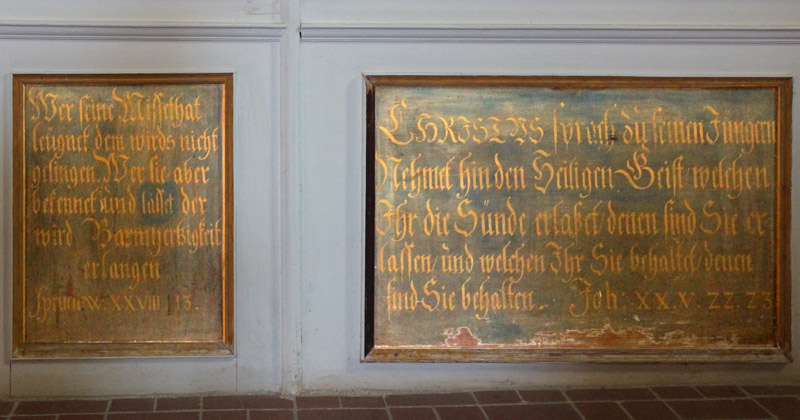 Wer seine Missethat
leugnet dem wirds nicht
gelingen Wer sie aber
bekennet und lasset der
wird Barmhertzigkeit
erlangen
Spruchw. XXVIII 13.
CHRISTUS sprach zu seinen Jüngern
Nehmet hin den Heiligen Geist welchen
Ihr die Sünde erlaßet, denen sind Sie er-
lassen, und welchen Ihr Sie behaltet, denen
sind Sie behalten. Joh: XX.V. 22.23